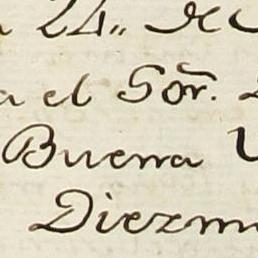 24,, de
a el Sõr.
Buena
Diezm